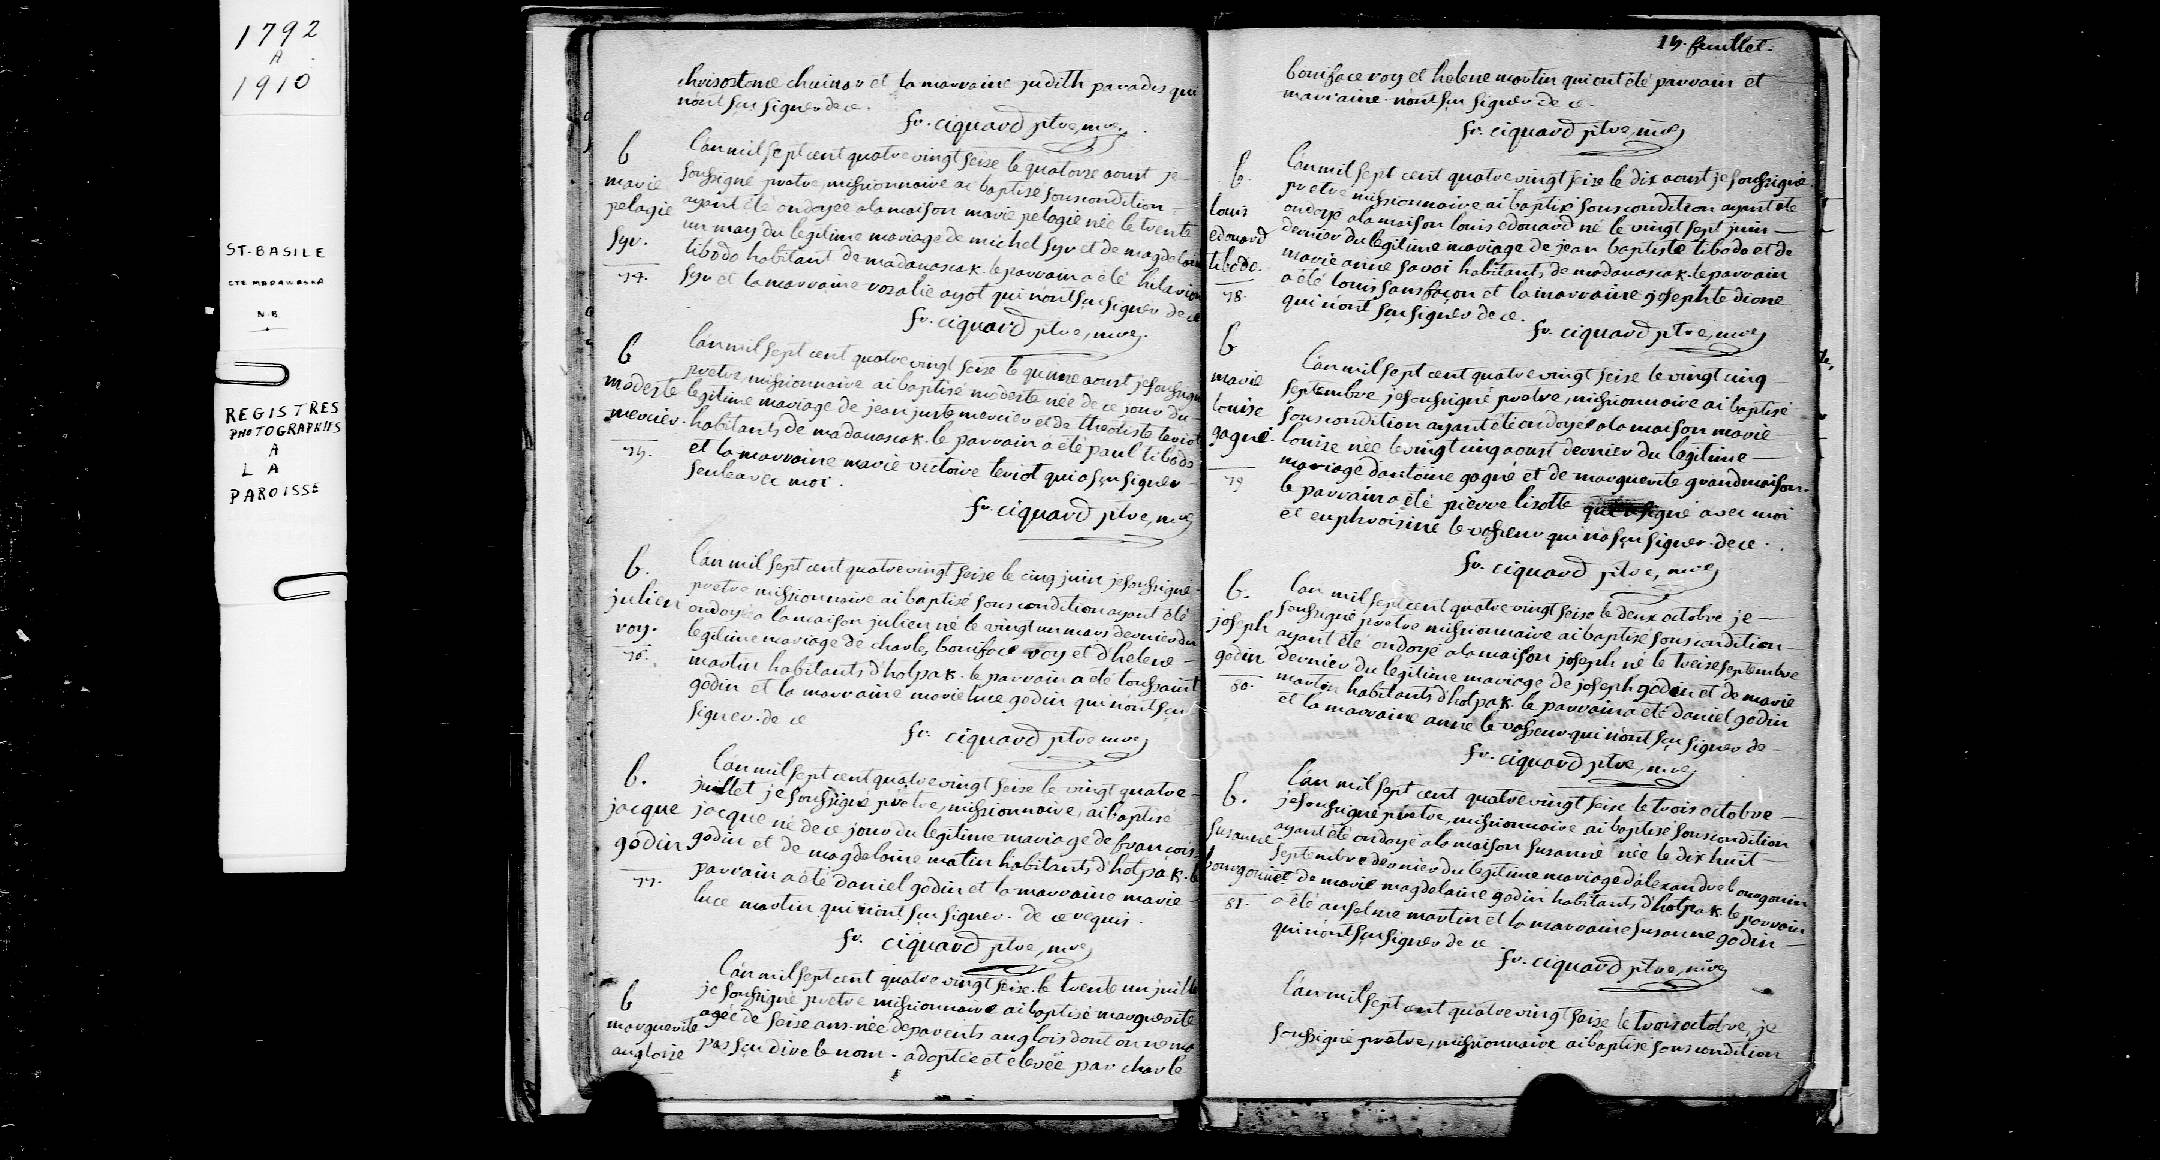 1792
A
1910
ST-BASILE
CTE MADAWASKA
N.B
REGISTRES
PHOTOGRAPHIES
A
LA
PAROISSE
chrisostome chuinar et la marraine judith paradis qui
n'ont scu signer de ce.
fr. ciquard ptre, mre
b
marie
pelagie
syr.
74.
l'an mil sept cent quatre vingt seise le quatorse aoust je
soussigné pretre, missionnaire ai baptisé sous condition
ayant été ondoyée a la maison marie pelagie née le trente
un may du legitime mariage de michel syr et de magdelaine
tibodo habitant de madaouascak. le parrain a été hilarion
syr et la marraine rosalie ayot qui n'ont scu signer de ce
fr. ciquard ptre, mre
b
modeste
mercier.
75.
l'an mil sept cent quatre vingt seise le quinse aoust je soussigné
pretre, missionnaire ai baptisé modeste née de ce jour du
legitime mariage de jean juste mercier et de theotiste teriot
habitants de madaouascak. le parrain a été paul tibodo
et la marraine marie victoire teriot qui a scu signer
seule avec moi.
fr. ciquard ptre, mre
b.
julien
roy.
76.
l'an mil sept cent quatre vingt seise le cinq juin je soussigné
pretre missionnaire ai baptisé sous condition ayant été
ondoyé a la maison julien né le vingt un mars dernier du
legitime mariage de charle, boniface roy et d'helene
martin habitants d'hotpak. le parrain a été toussaint
godin et la marraine marie luce godin qui n'ont scu
signer. de ce
fr. ciquard ptre mre
b.
jacque
godin
77.
l'an mil sept cent quatre vingt seise le vingt quatre
juillet je soussigné pretre, missionnaire, ai baptisé
jacque né de ce jour du legitime mariage de francois
godin et de magdelaine matin habitants d'hotpak. le
parrain a été daniel godin et la marraine marie
luce martin qui n'ont scu signer. de ce requis.
fr. ciquard ptre, mre
b
marguerite
angloise
l'an mil sept cent quatre vingt seise. le trente un juillet
je soussigné pretre missionnaire ai baptisé marguerite
agée de seise ans. née de parents anglois dont on ne m'a
pas scu dire le nom. adoptée et élevée par charle
15. feuillet.
boniface roy et helene martin qui ont été parrain et
marraine. n'ont scu signer de ce.
fr. ciquard ptre, mre
b.
louis
edouard
tibodo.
78.
l'an mil sept cent quatre vingt seise le dix aoust je soussigné.
pretre missionnaire ai baptisé sous condition ayant été
ondoyé a la maison louis edouard né le vingt sept juin
dernier du legitime mariage de jean baptiste tibodo et de
marie anne savoi habitants de madaouascak. le parrain
a été louis sansfaçon et la marraine josephte dione
qui n'ont scu signer de ce.
fr. ciquard ptre, mre
b
marie
louise
gagné.
79
l'an mil sept cent quatre vingt seise le vingt cinq
septembre je soussigné pretre, missionnaire ai baptisé
sous condition ayant été ondoyée a la maison marie
louise née le vingt cinq aoust dernier du legitime
mariage d'antoine gagné et de marguerite grandmaison.
le parrain a été pierre lisotte qui a signé avec moi
et euphroisine le vasseur qui n'a scu signer. de ce.
fr. ciquard ptre, mre
b.
joseph
godin
80.
l'an mil sept cent quatre vingt seise le deux octobre je
soussigné pretre missionnaire ai baptisé sous condition
ayant été ondoyé a la maison joseph né le treise septembre
dernier du legitime mariage de joseph godin et de marie
martin habitants d'hotpak. le parrain a été daniel godin
et la marraine anne le vasseur qui n'ont scu signer de
fr. ciquard ptre, mre
b.
susanne
bourgouin
81.
l'an mil sept cent quatre vingt seise le trois octobre
je soussigné pretre, missionnaire ai baptisé sous condition
ayant été ondoyé a la maison susanne née le dix huit
septembre dernier du legitime mariage d'alexandre bourgouin
et de marie magdelaine godin habitants d'hotpak. le parrain
a été anselme martin et la marraine susanne godin
qui n'ont scu signer de ce
fr. ciquard ptre, mre
l'an mil sept cent quatre vingt seise le trois octobre, je
soussigné pretre, missionnaire ai baptisé sous condition